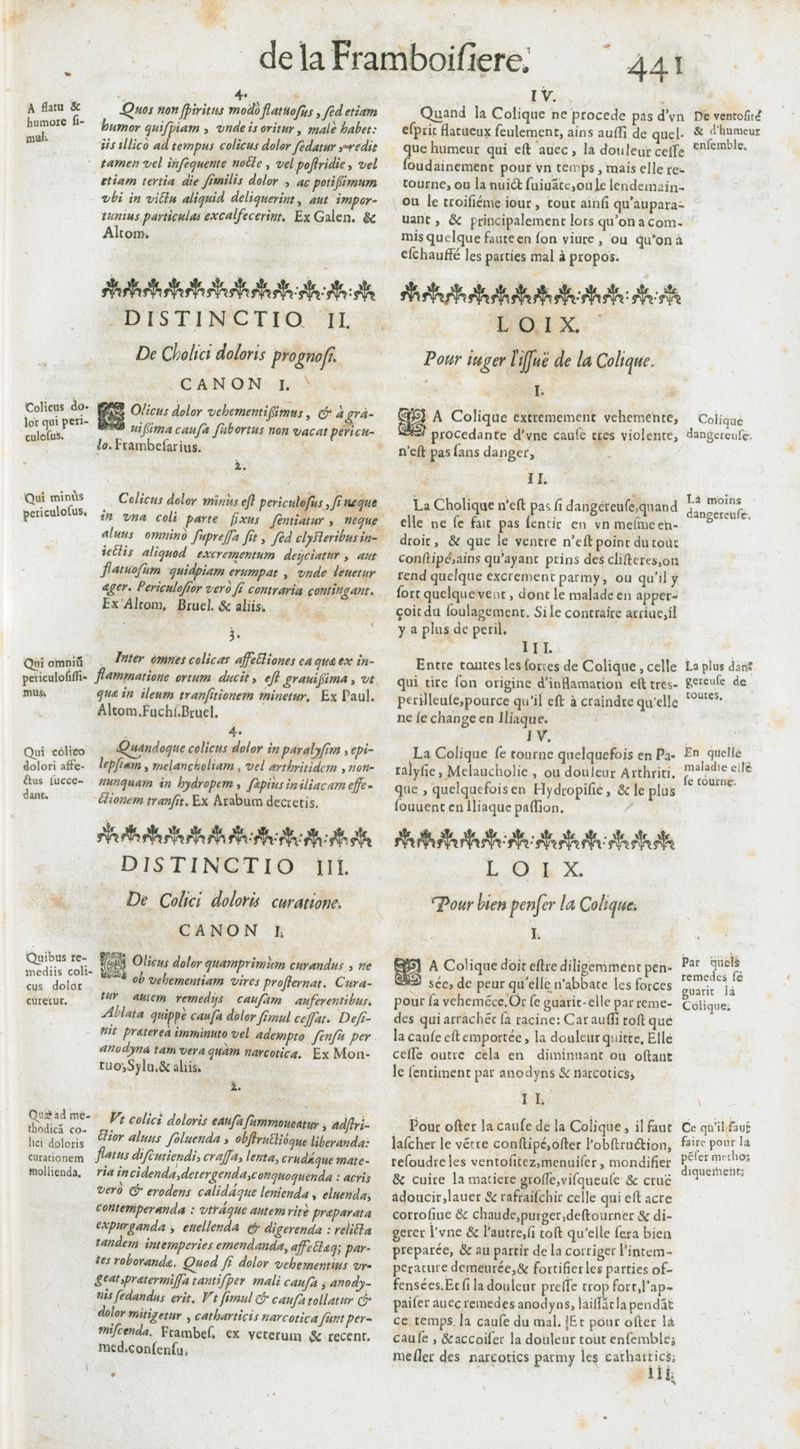 de la Framboisiere. 441
A flatu &
humore si-
mul.
4.
Quos non spiritus modò flatuosus, sed etiam
humor quispiam, vnde is oritur, malè habet:
iis illicò ad tempus colicus dolor sedatur, redit
tamen vel insequente nocte, vel postridie, vel
etiam tertia die similis dolor, ac potißimum
vbi in victu aliquid deliquerint, aut impor-
tunius particulas excalfecerint. Ex Galen. &
Altom.
DISTINCTIO II.
De Cholici doloris prognosi.
CANON I.
Colicus do-
lor qui peri-
culosus.
COlicus dolor vehementißimus, & à gra-
uißima causa subortus non vacat pericu-
lo. Frambesarius.
2.
Qui minùs
periculosus.
Colicus dolor minùs est periculosus, si neque
in vna coli parte fixus sentiatur, neque
aluus omninò supressa sit, sed clysteribus in-
iectis aliquod excrementum deijciatur, aut
flatuosum quidpiam erumpat, vnde leuetur
ager. Periculosior verò si contraria contingant.
Ex Altom, Bruel. & aliis.
3.
Qui omniũ
periculosissi-
mus.
Inter omnes colicas affectiones ea quæ ex in-
flammatione ortum ducit, est grauißima, vt
quæ in ileum transitionem minetur. Ex Paul.
Altom. Fuchs. Bruel.
4.
Qui colico
dolori affe-
ctus succe-
dant.
Quandoque colicus dolor in paralysim, epi-
lepsiam, melancholiam, vel arthritidem, non-
nunquam in hydropem, sæpius in iliacam affe-
ctionem transit. Ex Arabum decretis.
DISTINCTIO III.
De Colici doloris curatione.
CANON I.
Quibus re-
mediis coli-
cus dolor
curetur.
COlicus dolor quamprimùm curandus, ne
ob vehementiam vires prosternat. Cura-
tur autem remedijs causam auferentibus.
Ablata quippè causa dolor simul cessat. Desi-
nit præterea imminuto vel adempto sensu per
anodyna tam vera quàm narcotica. Ex Mon-
tuo, Sylu. & aliis.
2.
Quæ ad me-
thodicã co-
lici doloris
curationem
mollienda.
Vt colici doloris causa summoueatur, adstri-
ctior aluus soluenda, obstructióque liberanda:
flatus discutiendi, crassa, lenta, crudáque mate-
ria incidenda, detergenda, conquoquenda: acris
verò & erodens calidáque lenienda, eluenda,
contemperanda: vtráque autem ritè præparata
expurganda, euellenda & digerenda: relicta
tandem intemperies emendanda, affectæq; par-
tes roborandæ. Quod si dolor vehementius vr-
geat, prætermissa tantisper mali causa, anody-
nis sedandus erit. Vt simul & causa tollatur &
dolor mitigetur, catharticis narcotica sunt per-
miscenda. Frambes. ex veterum & recent.
med. consensu.
IV.
Quand la Colique ne procede pas d'vn
esprit flatueux seulement, ains aussi de quel-
que humeur qui est auec, la douleur cesse
soudainement pour vn temps, mais elle re-
tourne, ou la nuict suiuãte, ou le lendemain
ou le troisiéme iour, tout ainsi qu'aupara-
uant, & principalement lors qu'on a com-
mis quelque faute en son viure, ou qu'on a
eschauffé les parties mal à propos.
De ventosité
& d'humeur
ensemble.
LOIX.
Pour iuger l'issuë de la Colique.
I.
LA Colique extremement vehemente,
procedante d'vne cause tres violente,
n'est pas sans danger,
Colique
dangereuse.
II.
La Cholique n'est pas si dangereuse, quand
elle ne se fait pas sentir en vn mesme en-
droit, & que le ventre n'est point du tout
constipé, ains qu'ayant prins des clisteres, on
rend quelque excrement parmy, ou qu'il y
sort quelque vent, dont le malade en apper-
çoit du soulagement. Si le contraire arriue, il
y a plus de peril.
La moins
dangereuse.
III.
Entre toutes les sortes de Colique, celle
qui tire son origine d'inflamation est tres-
perilleuse, pource qu'il est à craindre qu'elle
ne se change en Iliaque.
La plus dan-
gereuse de
toutes.
IV.
La Colique se tourne quelquefois en Pa-
ralysie, Melaucholie, ou douleur Arthriti-
que, quelquefois en Hydropisie, & le plus
souuent en Iliaque passion.
En quelle
maladie elle
se tourne.
LOIX.
Pour bien penser la Colique.
I.
LA Colique doit estre diligemment pen-
sée, de peur qu'elle n'abbate les forces
pour sa vehemẽce. Or se guarit-elle par reme-
des qui arrachẽt sa racine: Car aussi tost que
la cause est emportée, la douleur quitte. Elle
cesse outre cela en diminuant ou ostant
le sentiment par anodyns & narcotics,
Par quels
remedes se
guarit la
Colique.
II.
Pour oster la cause de la Colique, il faut
lascher le vẽtre constipé, oster l'obstruction,
resoudre les ventositez, menuiser, mondifier
& cuire la matiere grosse, visqueuse & cruë
adoucir, lauer & rafraischir celle qui est acre
corrosiue & chaude, purger, destourner & di-
gerer l'vne & l'autre, si tost qu'elle sera bien
preparée, & au partir de la corriger l'intem-
perature demeurée, & fortifier les parties of-
fensées. Et si la douleur presse trop fort, l'ap-
paiser auec remedes anodyns, laissãt la pendãt
ce temps la cause du mal. Et pour oster la
cause, & accoiser la douleur tout ensemble;
mesler des narcotics parmy les cathartics.
Ce qu'il faut
faire pour la
pẽser metho-
diquement.
III.